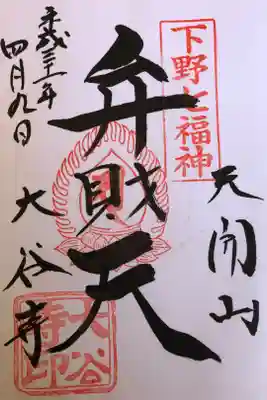 下野七福神
天開山
弁財天
大谷寺
平成三十一年
四月九日
大谷
寺印